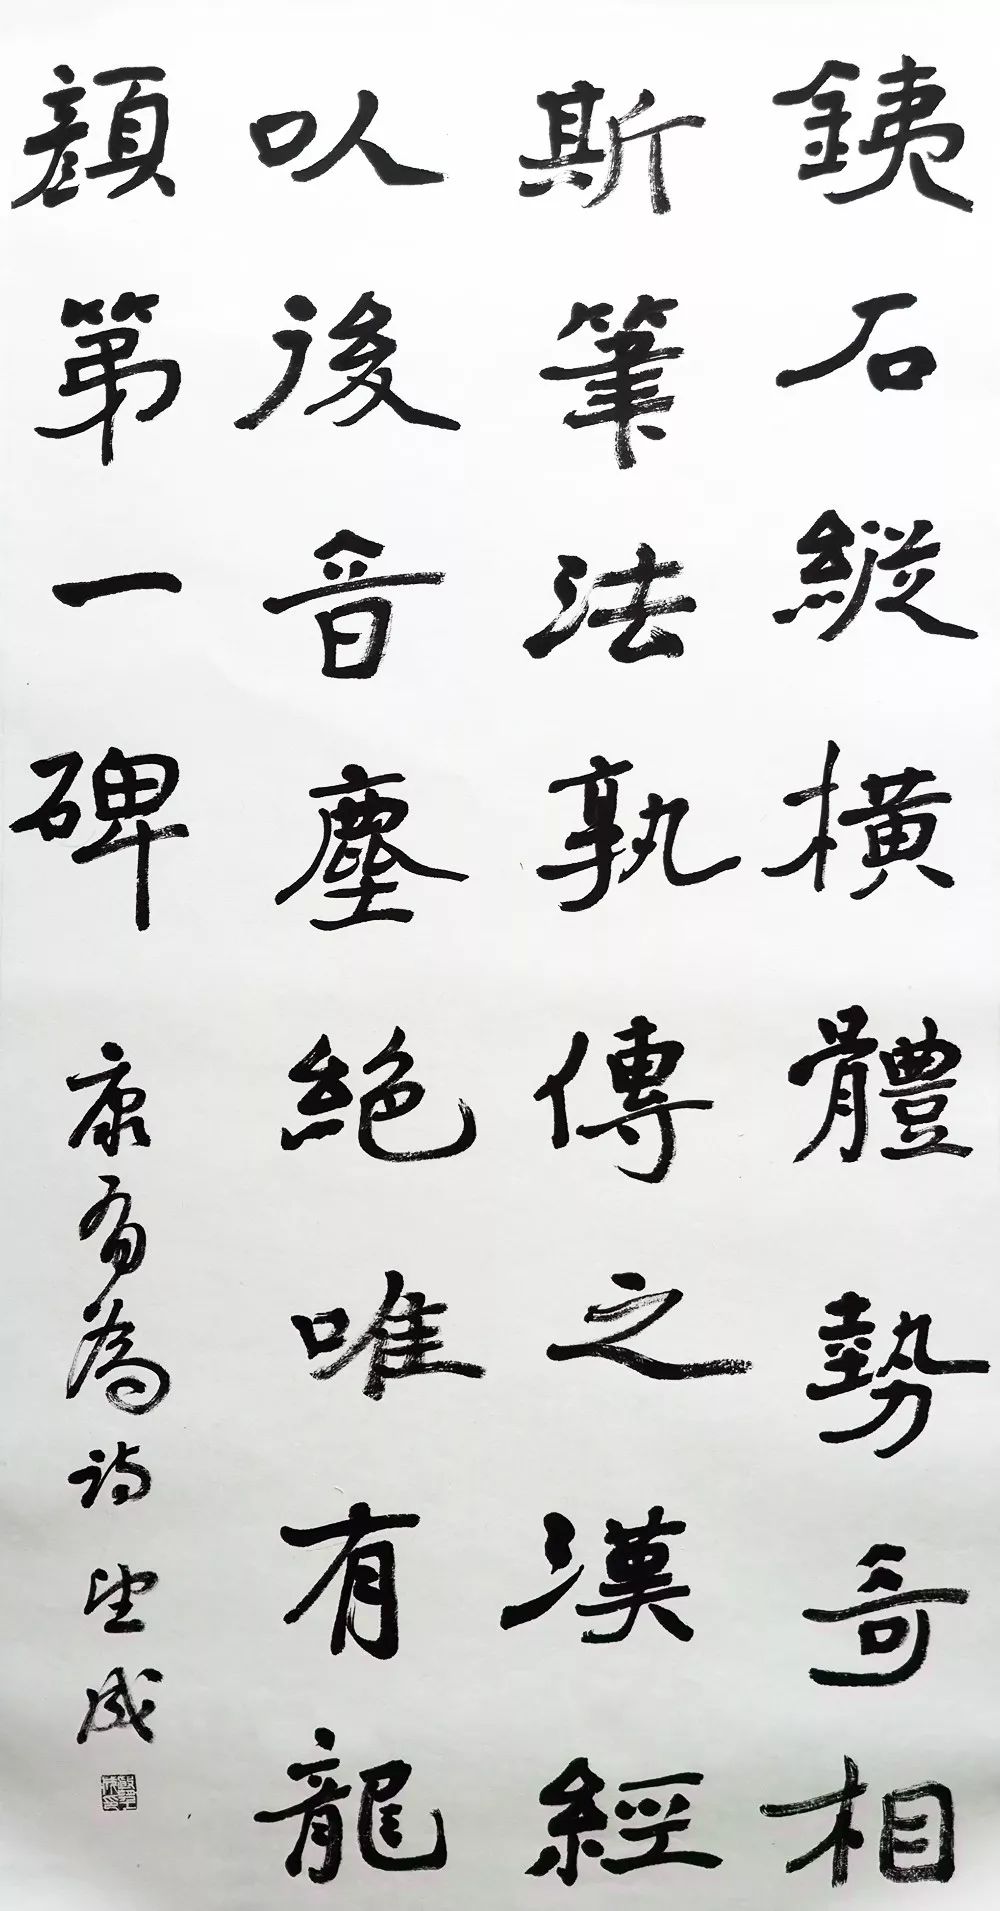 銕石縱橫體勢奇相
斯筆法孰傳之漢經
以後音塵絕唯有龍
顏第一碑 康有為詩 成